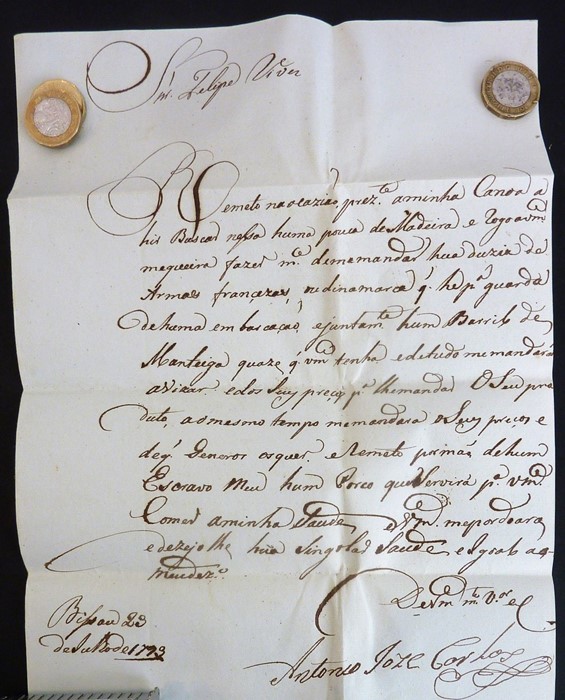 Snr. Felipe Vr̃er
Remeto na ocazião, prezte. a minha Canoa a
hir Bascar nessa huma pouca de Madeira e Rogo a vmce.
me queira fazer mce. de me mandar hua duzia de
Armas francezas, ou dinamarca q. he pa. guarda
de huma embarcação, e juntamte. hum Barril de
Manteiga quaze q. vmce tenha e de tudo me mandará
avizar. e dos Seus preços pa. lhe mandar O Seu pro
duto, ao mesmo tempo me mandara os Seus precos e
de q. Generos os quer, e Remeto por mãs de hum
Escravo Meu hum Porco que Servira pa. vmce.
Comer a minha Saude, e Vmce. me perdoara,
e dezejo lhe hua Singolar Saude, e Igoal a
Bissau 23
de Julho de 1793
De Vm mto. Vor. e C.
Antonio Joze Carlos